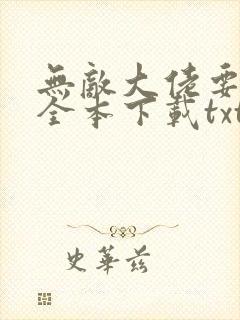 無敵大佬要
全本下載txt
史華茲